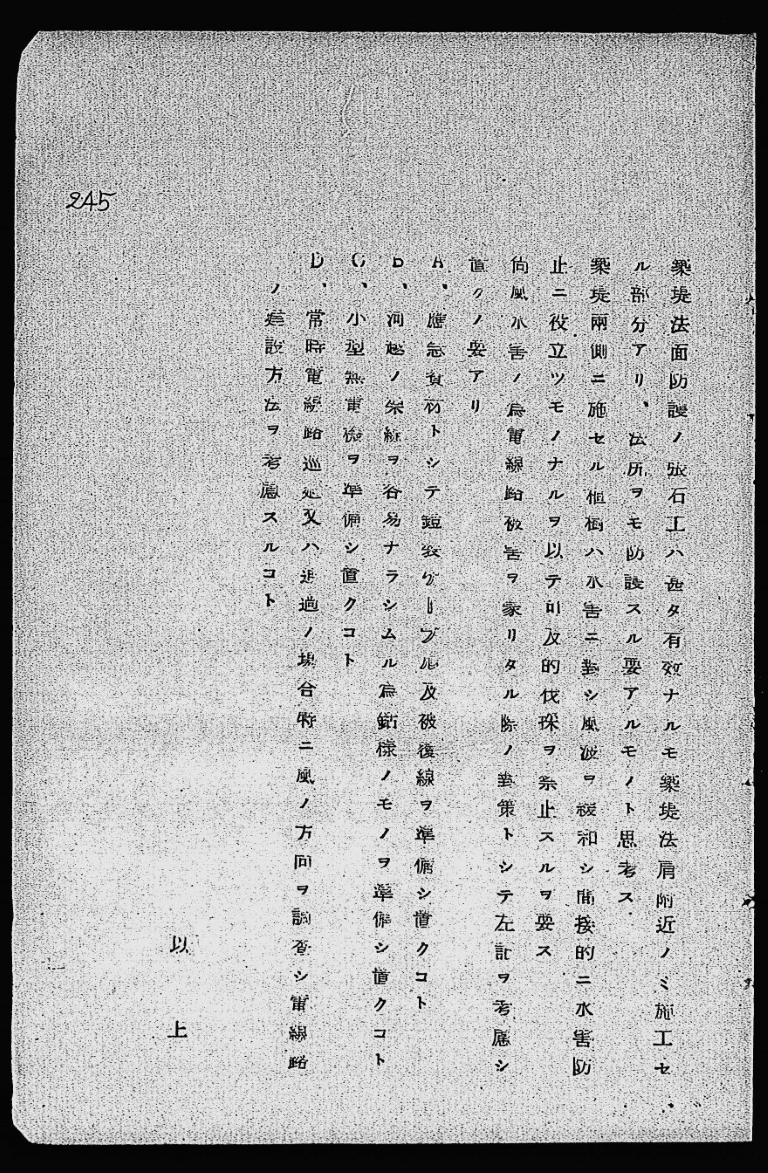 築堤法面防護ノ張石工ハ甚タ有效ナルモ築堤法肩附近ノミ施工セ
ル部分アリ、法尻ヲモ防護スル要アルモノト思考ス
築堤兩側ニ施セル植樹ハ水害ニ對シ風波ヲ緩和シ間接的ニ水害防
止ニ役立ツモノナルヲ以テ可及的伐採ヲ禁止スルヲ要ス
尚風水害ノ為電線路被害ヲ蒙リタル際ノ對策トシテ左記ヲ考慮シ
置クノ要アリ
A、應急資材トシテ鎧装ケーブル及被覆線ヲ準備シ置クコト
B、河越ノ架線ヲ容易ナラシムル為錨様ノモノヲ準備シ置クコト
C、小型無電機ヲ準備シ置クコト
D、常時電線路巡廻又ハ通過ノ場合特ニ風ノ方向ヲ調査シ電線路
ノ建設方法ヲ考慮スルコト
以上
245